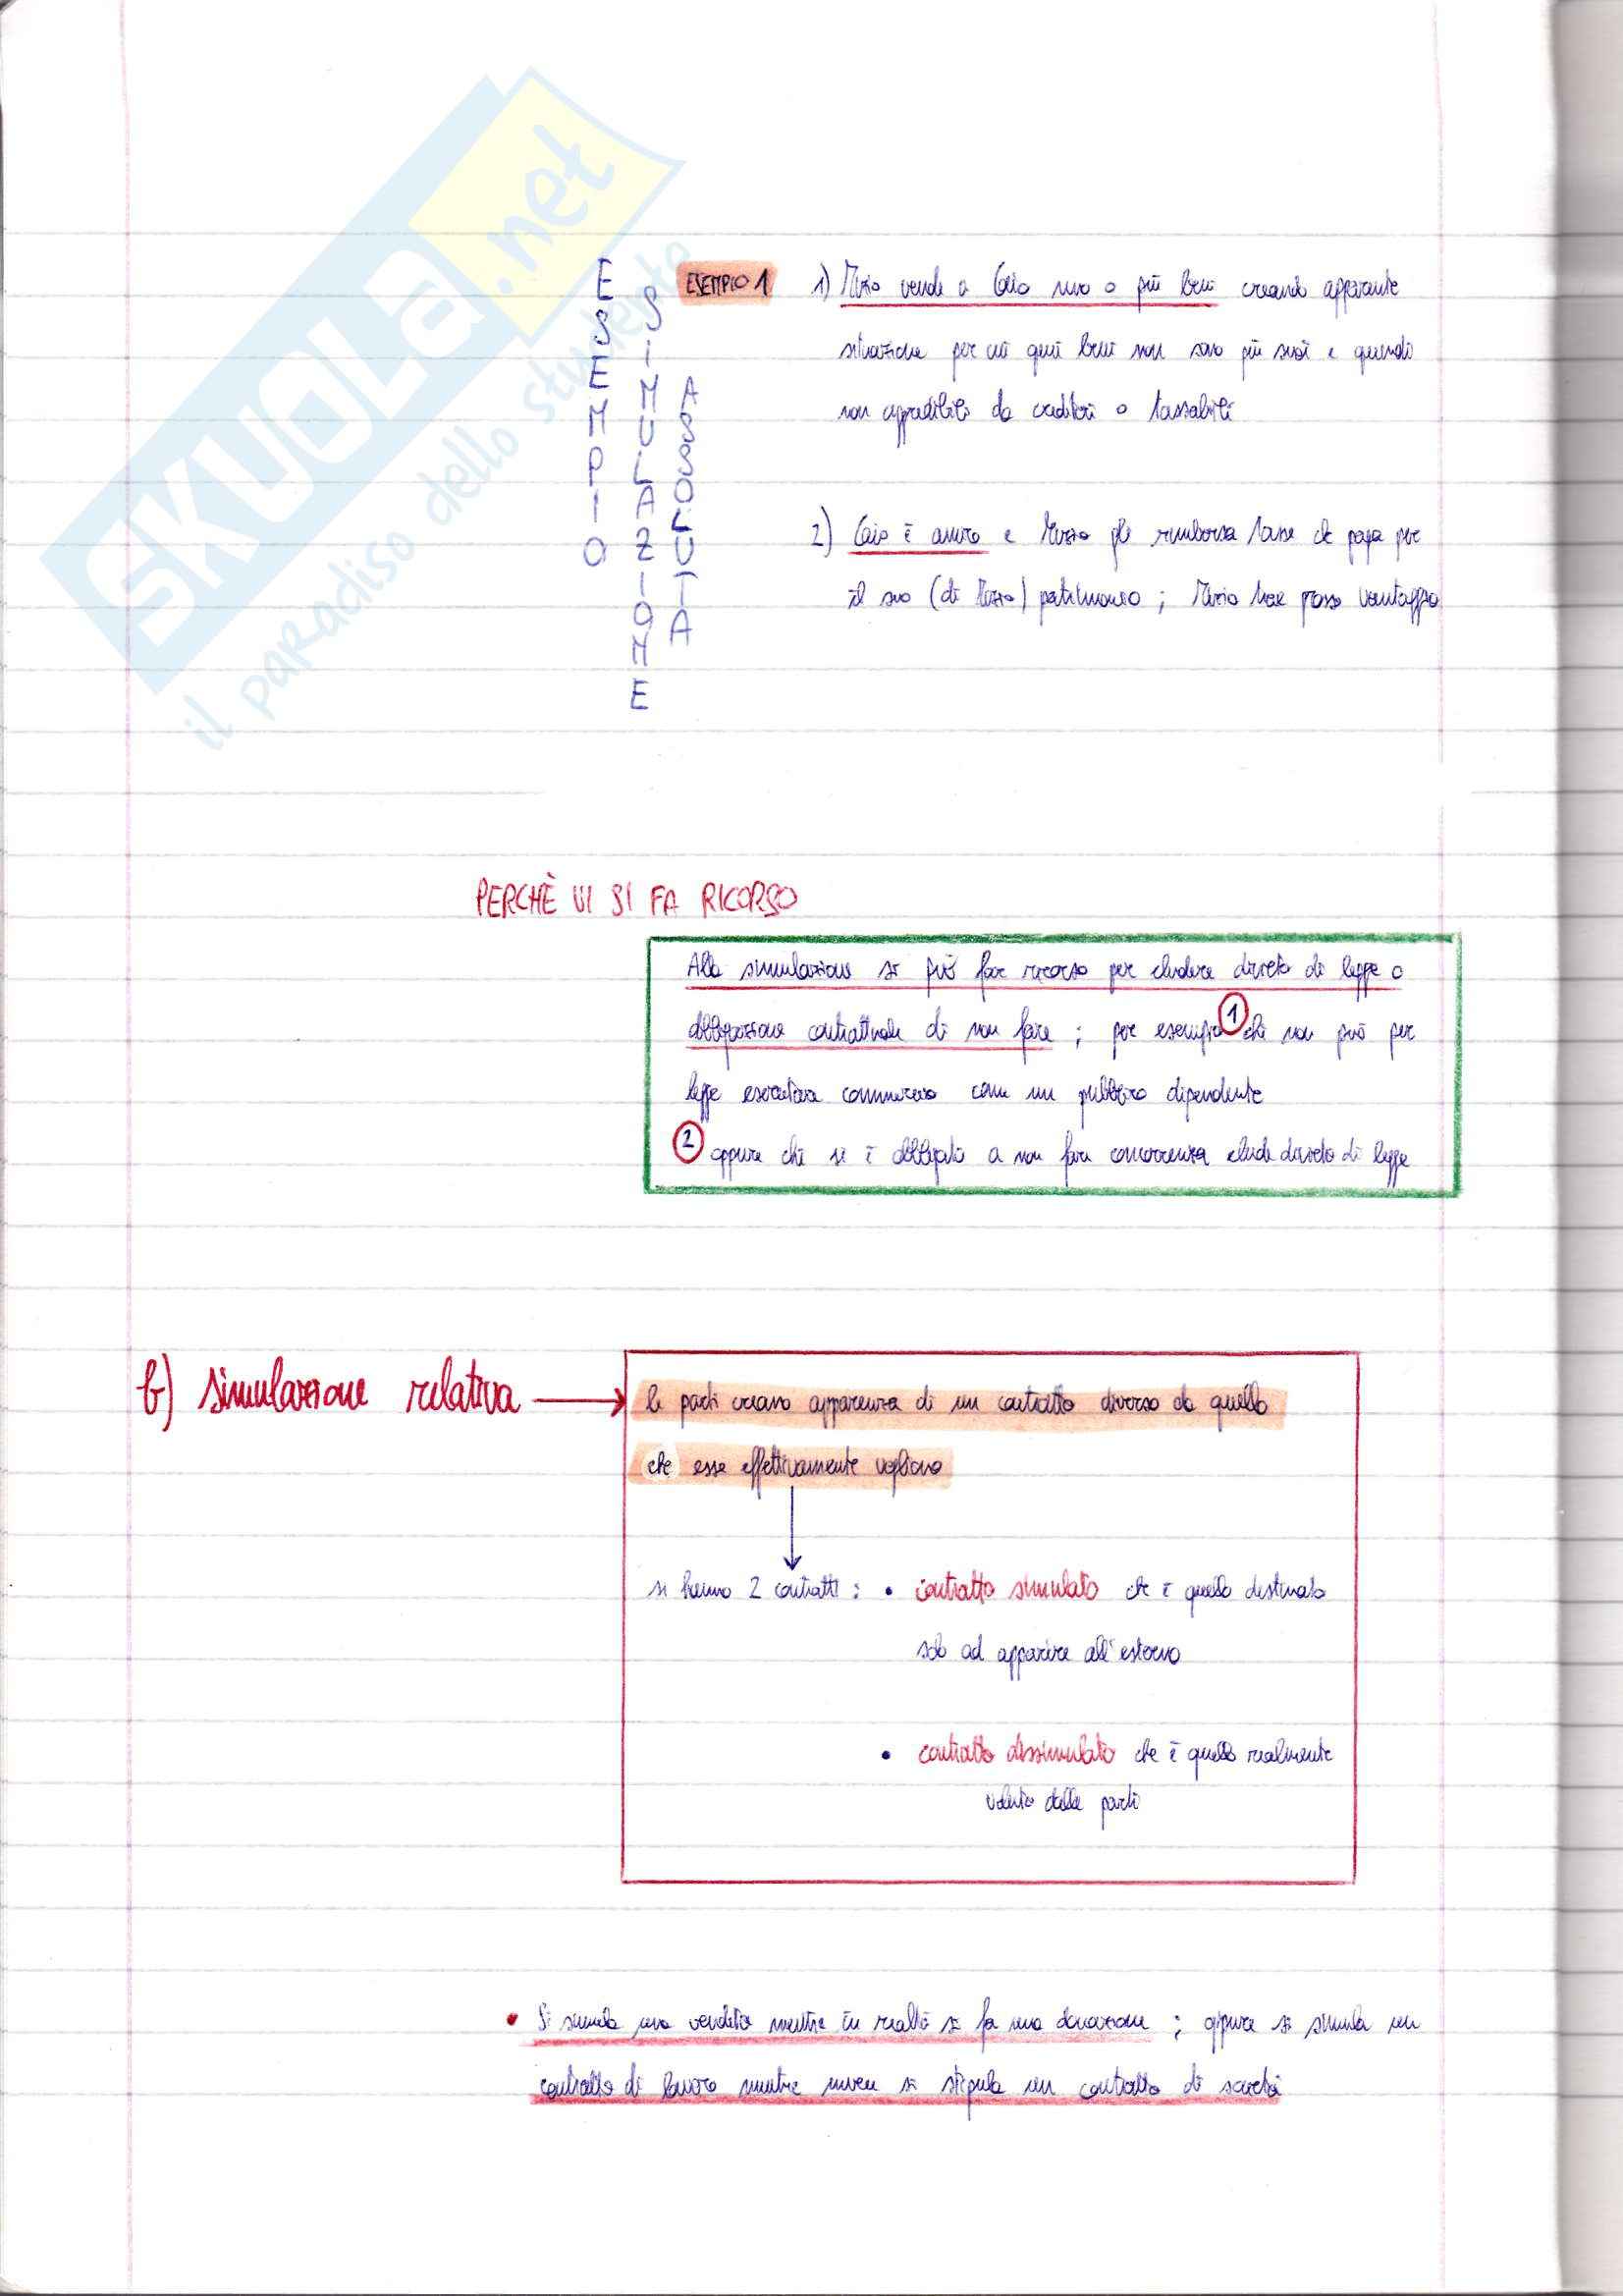 SKUOLA.net
il paradiso dello studente
ESEMPIO
SIMULAZIONE
ASSOLUTA
ESEMPIO 1
1) Mevio vende a Caio uno o più beni creando apparente
situazione per cui quei beni non sono più suoi e quindi
non aggredibili da creditori o tassabili
2) Caio è amico e Mevio gli rimborsa tasse che paga per
il suo (di Mevio) patrimonio; Mevio trae grosso vantaggio
PERCHÈ VI SI FA RICORSO
Alla simulazione si può fare ricorso per eludere divieto di legge o
obbligazione contrattuale di non fare; per esempio 1 chi non può per
legge esercitare commercio come un pubblico dipendente
2 oppure chi si è obbligato a non fare concorrenza elude divieto di legge
b) simulazione relativa
le parti creano apparenza di un contratto diverso da quello
che esse effettivamente vogliono
si hanno 2 contratti: • contratto simulato che è quello destinato
solo ad apparire all'esterno
• contratto dissimulato che è quello realmente
voluto dalle parti
• Si simula una vendita mentre in realtà si fa una donazione; oppure si simula un
contratto di lavoro mentre invece si stipula un contratto di società